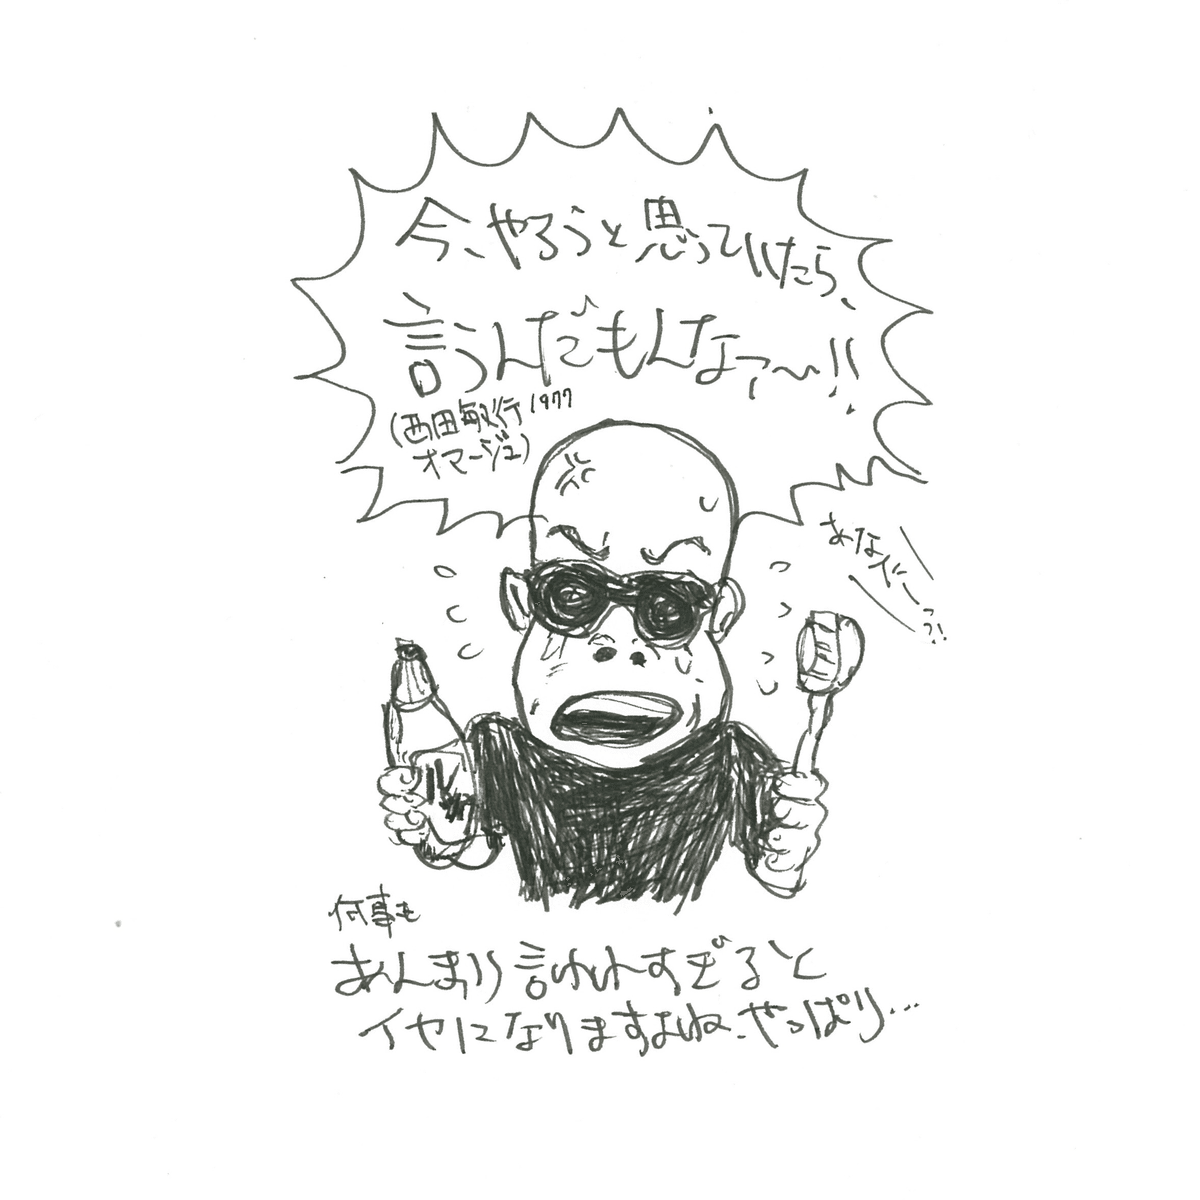 今、やろうと思っていたら、
言うんだもんなァ〜!!
(西田敏行1977
オマージュ)
あなたーっ?!
何事も
あんまり言われすぎると
イヤになりますよね、やっぱり…